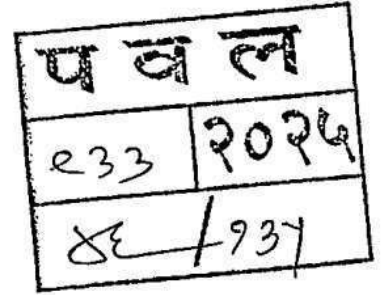 प व ल
९३३ २०२५
४६ / १३५